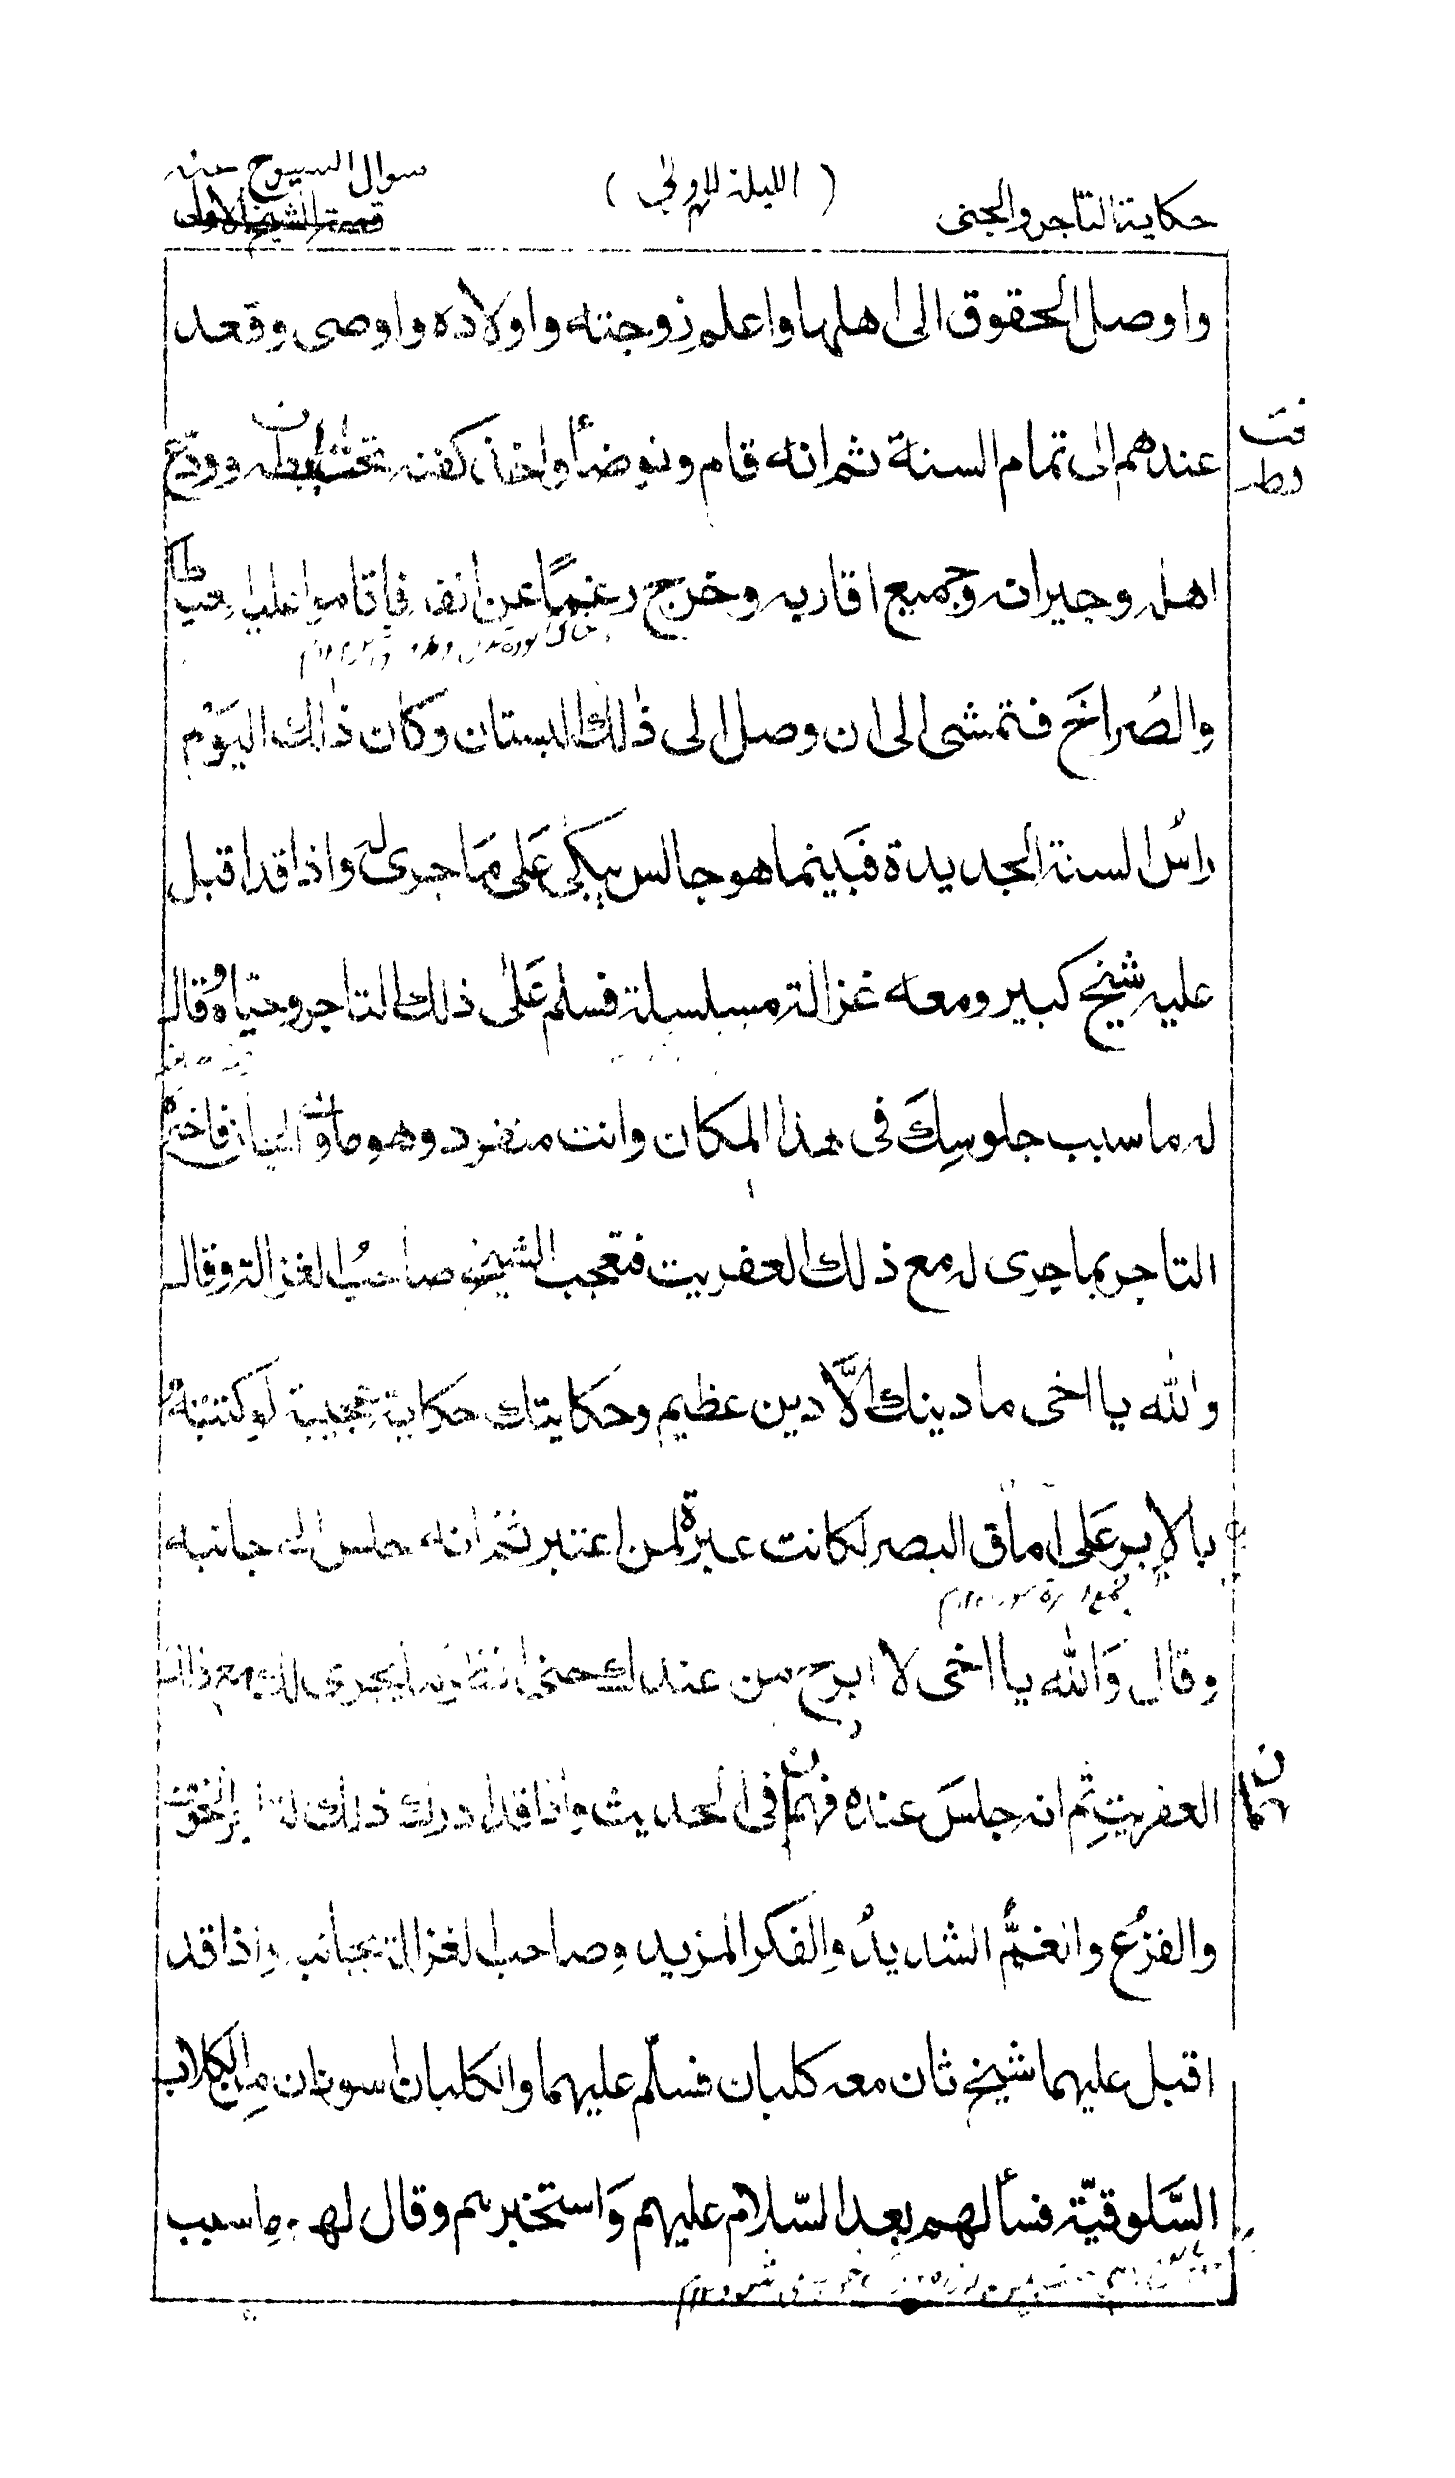 سوال الشيوخ عنه
حكاية التاجر والجنى
( الليلة الاولى )
قصة الشيخ الاول
واوصل الحقوق الى اهلها واعلم زوجته واولاده واوصى وقعد
عندهم الى تمام السنة ثم انه قام وتوضأ واخذ كفنه تحت ابطه وودع
اهله وجيرانه وجميع اقاربه وخرج رغمًا عن انفه فاقاموا عليه عياطا
والصُراخَ فتمشى الى ان وصل الى ذٰلك البستان وكان ذٰلك اليَوْم
راسُ السنة الجديدة فَبينما هو جالس يبكى عَلى مَا جرى لَه واذا قد اقبل
عليه شيخ كبير ومعه غزالة مسلسلة فسلم عَلٰى ذلك التاجر وحيّاهُ وقال
له ما سبب جلوسِكَ فى هذا المكان وانت منفرد وهو ماوٰى الجان فاخبرهُ
التاجر بما جرى له مع ذلك العفريت فتعجب الشيخ صاحبُ الغزالة وقال
والله يا اخى ما دينك الَّا دين عظيم وحكايتك حكاية عجيبة لو كتبت
بالابر عَلى اٰماق البصر لكانت عبرةً لمن اعتبر ثم انه جلس الى جانبه
وقال وَالله يا اخى لا ابرح من عندك حتى انظر ما يجرى لك مع ذلك
العفريتِ ثم انه جلسَ عنده فهما فى الحديث واذا قد ادرك ذلك التاجر الخوف
والفزعُ والغمُّ الشديدُ والفكر المزيد وصاحب الغزالة بجانبه واذا قد
اقبل عليهما شيخ ثان معه كلبان فسلّم عليهما والكلبان سودان مِن الكلاب
السَّلوقيّة فسألهم بعد السّلام عليهم وَاستخبرهم وقال لهم ما سبب